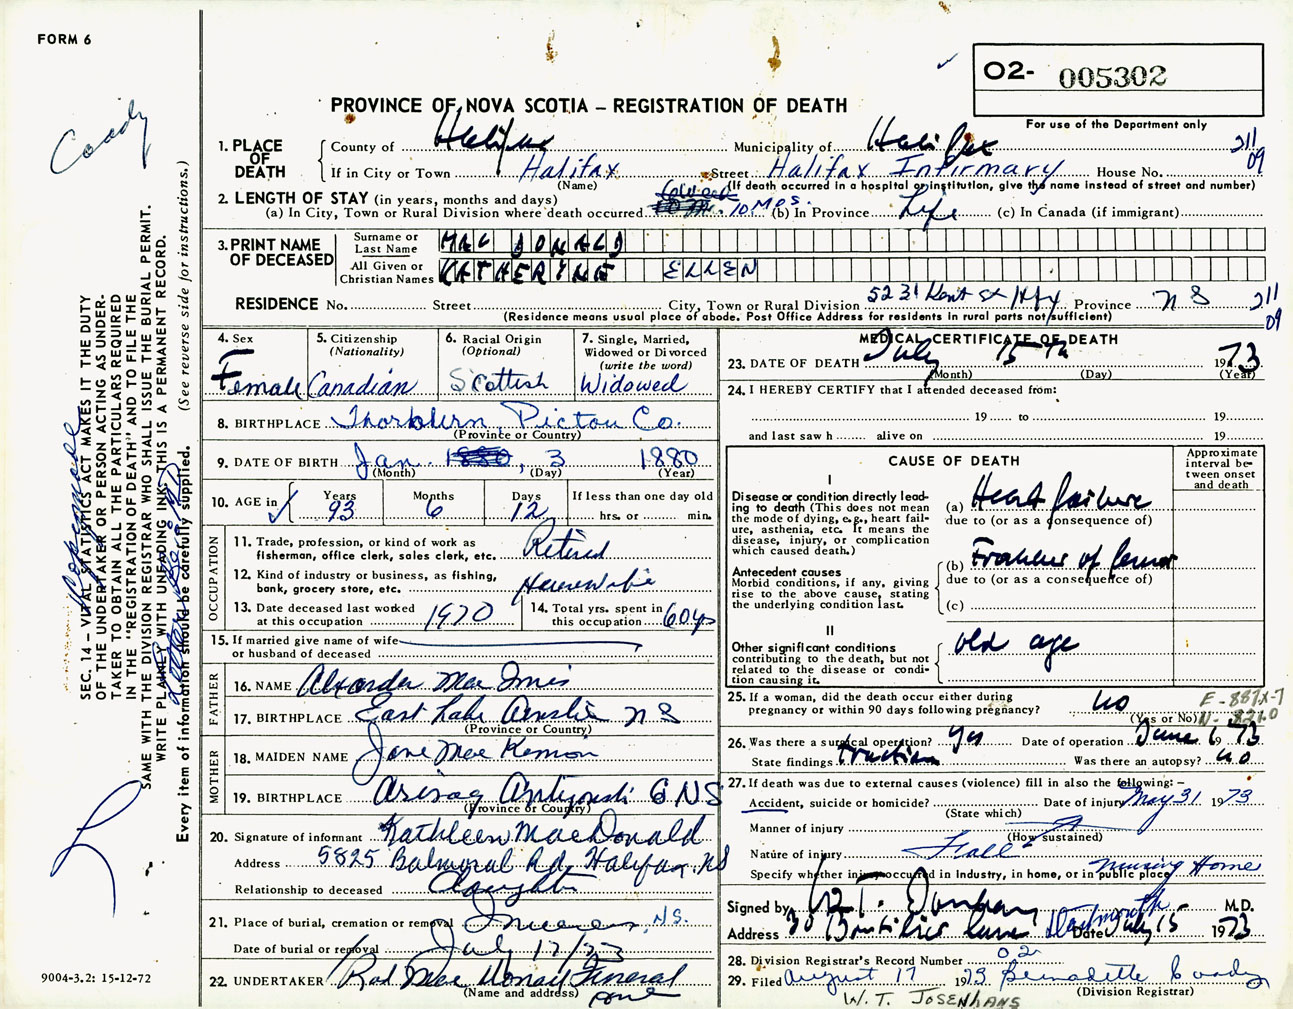 FORM 6
O2- 005302
For use of the Department only
PROVINCE OF NOVA SCOTIA – REGISTRATION OF DEATH
Coady
1. PLACE OF DEATH
County of Halifax Municipality of Halifax
If in City or Town Halifax Street Halifax Infirmary House No.
(Name) (If death occurred in a hospital or institution, give the name instead of street and number)
211
09
2. LENGTH OF STAY (in years, months and days)
(a) In City, Town or Rural Division where death occurred 10 Mos. (b) In Province Life (c) In Canada (if immigrant)
3. PRINT NAME OF DECEASED
Surname or Last Name MAC DONALD
All Given or Christian Names KATHERINE ELLEN
RESIDENCE No. Street City, Town or Rural Division 5231 Kent St Hfx Province N S
(Residence means usual place of abode. Post Office Address for residents in rural parts not sufficient)
211
09
4. Sex Female
5. Citizenship (Nationality) Canadian
6. Racial Origin (Optional) Scottish
7. Single, Married, Widowed or Divorced (write the word) Widowed
8. BIRTHPLACE Thorburn Pictou Co.
(Province or Country)
9. DATE OF BIRTH Jan. 3 1880
(Month) (Day) (Year)
10. AGE in Years 93 Months 6 Days 12 If less than one day old hrs. or min.
OCCUPATION
11. Trade, profession, or kind of work as fisherman, office clerk, sales clerk, etc. Retired
12. Kind of industry or business, as fishing, bank, grocery store, etc. Housewife
13. Date deceased last worked at this occupation 1970
14. Total yrs. spent in this occupation 60 yrs
15. If married give name of wife or husband of deceased
FATHER
16. NAME Alexander Mac Innis
17. BIRTHPLACE East Lake Ainslie N S
(Province or Country)
MOTHER
18. MAIDEN NAME Jane Mac Kinnon
19. BIRTHPLACE Arisaig Antigonish Co NS
(Province or Country)
20. Signature of informant Kathleen MacDonald
Address 5825 Balmoral Rd, Halifax, NS
Relationship to deceased Daughter
21. Place of burial, cremation or removal Inverness, N.S.
Date of burial or removal July 17/73
22. UNDERTAKER Rod Mac Donald Funeral
(Name and address)
MEDICAL CERTIFICATE OF DEATH
23. DATE OF DEATH July 15th 1973
(Month) (Day) (Year)
24. I HEREBY CERTIFY that I attended deceased from:
19 to 19
and last saw h alive on 19
CAUSE OF DEATH
Approximate interval between onset and death
I
Disease or condition directly leading to death (This does not mean the mode of dying, e.g., heart failure, asthenia, etc. It means the disease, injury, or complication which caused death.)
(a) Heart failure
due to (or as a consequence of)
Antecedent causes
Morbid conditions, if any, giving rise to the above cause, stating the underlying condition last.
(b) Fracture of femur
due to (or as a consequence of)
(c)
II
Other significant conditions contributing to the death, but not related to the disease or condition causing it.
old age
25. If a woman, did the death occur either during pregnancy or within 90 days following pregnancy? no
(Yes or No)
E-887X-7
N-821.0
26. Was there a surgical operation? Yes Date of operation June 1 1973
State findings traction Was there an autopsy? no
27. If death was due to external causes (violence) fill in also the following:–
Accident, suicide or homicide? Date of injury May 31 1973
(State which)
Manner of injury
(How sustained)
Nature of injury Fall
Specify whether injury occurred in Industry, in home, or in public place Nursing Home
Signed by M.D.
Address Dartmouth Date July 15 1973
28. Division Registrar's Record Number 02
29. Filed August 17 1973 Bernadette Coady
(Division Registrar)
W. T. JOSENHANS
SEC. 14 – VITAL STATISTICS ACT MAKES IT THE DUTY
OF THE UNDERTAKER OR PERSON ACTING AS UNDERTAKER TO OBTAIN ALL THE PARTICULARS REQUIRED
IN THE "REGISTRATION OF DEATH" AND TO FILE THE
SAME WITH THE DIVISION REGISTRAR WHO SHALL ISSUE THE BURIAL PERMIT.
WRITE PLAINLY WITH UNFADING INK. THIS IS A PERMANENT RECORD.
Every item of information should be carefully supplied. (See reverse side for instructions.)
9004-3.2: 15-12-72